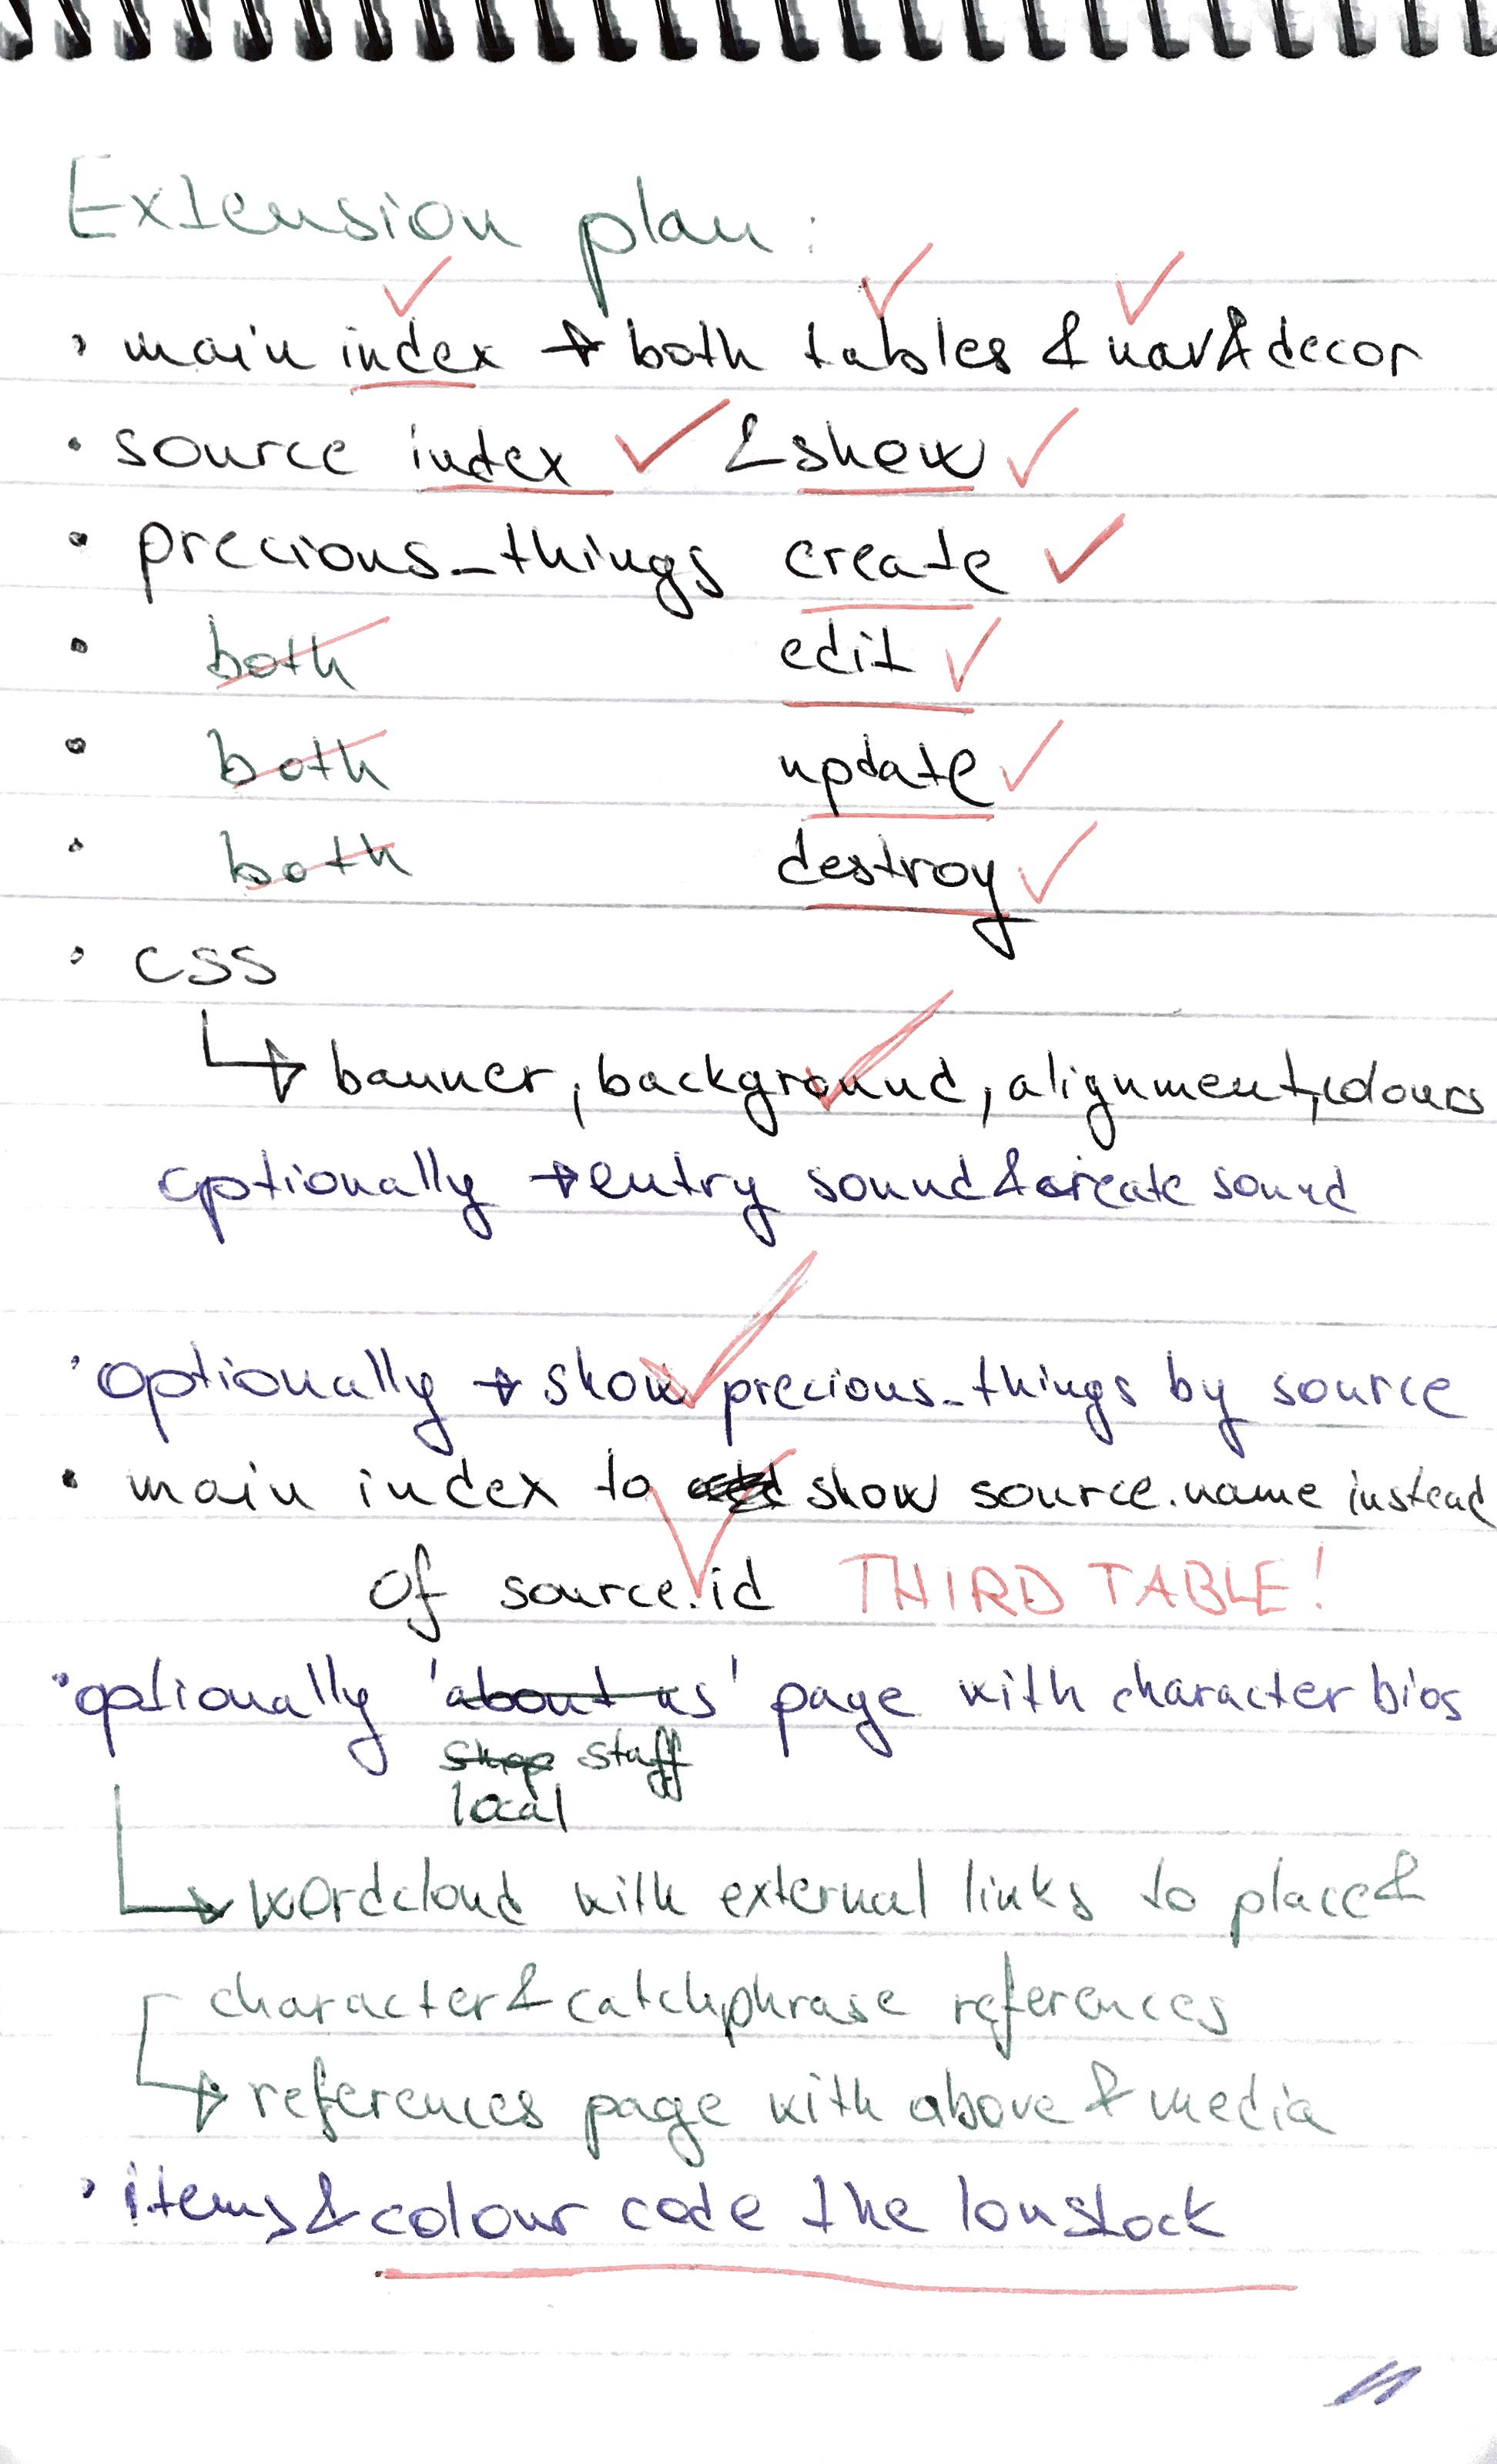 Extension plan:
• main index → both tables & nav & decor
• source index ✓ & show ✓
• precious_things create ✓
• both edit ✓
• both update ✓
• both destroy ✓
• css
↳ banner, background, alignment, colours
optionally → entry sound & create sound
• optionally → show precious_things by source
• main index to show source.name instead
of source.id THIRD TABLE!
• optionally 'about us' page with character bios
shop staff
local
↳ wordcloud with external links to place &
character & catchphrase references
↳ references page with above & media
• items & colour code the low stock